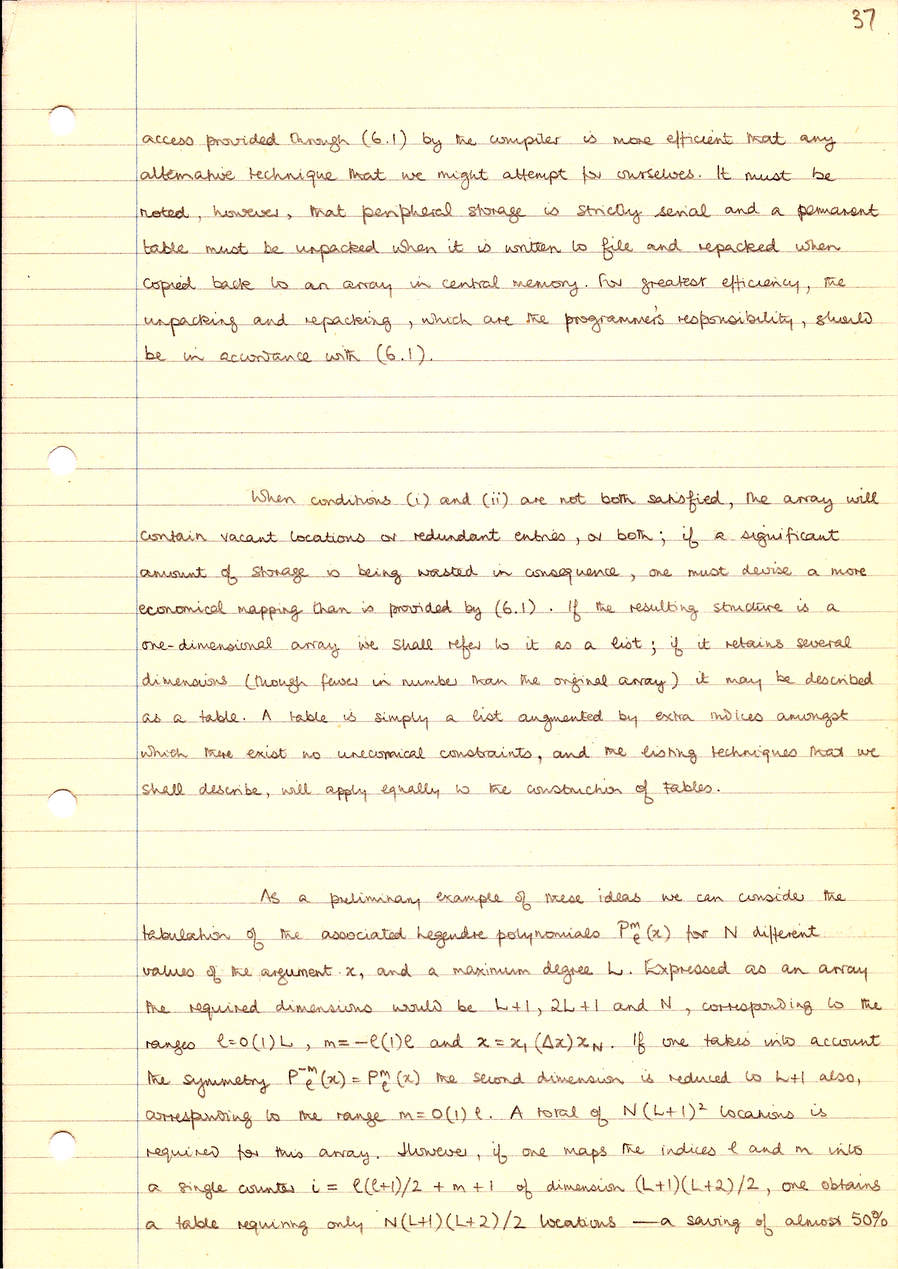 37
access provided through (6.1) by the compiler is more efficient that any
alternative technique that we might attempt for ourselves. It must be
noted, however, that peripheral storage is strictly serial and a permanent
table must be unpacked when it is written to file and repacked when
copied back to an array in central memory. For greatest efficiency, the
unpacking and repacking, which are the programmer's responsibility, should
be in accordance with (6.1).
When conditions (i) and (ii) are not both satisfied, the array will
contain vacant locations or redundant entries, or both; if a significant
amount of storage is being wasted in consequence, one must devise a more
economical mapping than is provided by (6.1). If the resulting structure is a
one-dimensional array we shall refer to it as a list; if it retains several
dimensions (though fewer in number than the original array) it may be described
as a table. A table is simply a list augmented by extra indices amongst
which there exist no uneconomical constraints, and the listing techniques that we
shall describe, will apply equally to the construction of tables.
As a preliminary example of these ideas we can consider the
tabulation of the associated Legendre polynomials Pₗᵐ(x) for N different
values of the argument x, and a maximum degree L. Expressed as an array
the required dimensions would be L+1, 2L+1 and N, corresponding to the
ranges ℓ=0(1)L, m=-ℓ(1)ℓ and x=x₁(Δx)x_N. If one takes into account
the symmetry Pₗ⁻ᵐ(x) = Pₗᵐ(x) the second dimension is reduced to L+1 also,
corresponding to the range m=0(1)ℓ. A total of N(L+1)² locations is
required for this array. However, if one maps the indices ℓ and m into
a single counter i = ℓ(ℓ+1)/2 + m + 1 of dimension (L+1)(L+2)/2, one obtains
a table requiring only N(L+1)(L+2)/2 locations — a saving of almost 50%